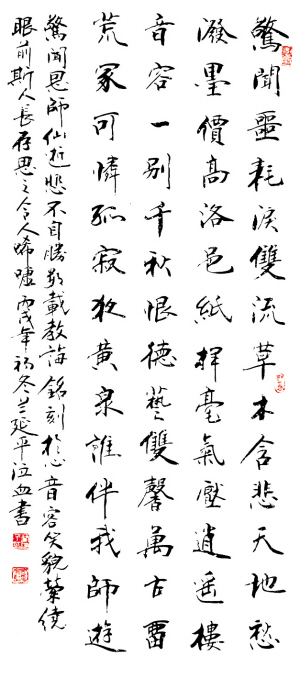 驚聞噩耗淚雙流草木含悲天地愁
潑墨價高洛邑紙揮毫氣壓逍遥樓
音容一別千秋恨德藝雙馨萬古畱
荒冢可憐孤寂夜黄泉誰伴我師遊
驚聞恩師仙逝悲不自勝數載教誨銘刻於心音容笑貌縈繞
眼前斯人長存思之令人唏噓丙戌年初冬兰延平泣血書